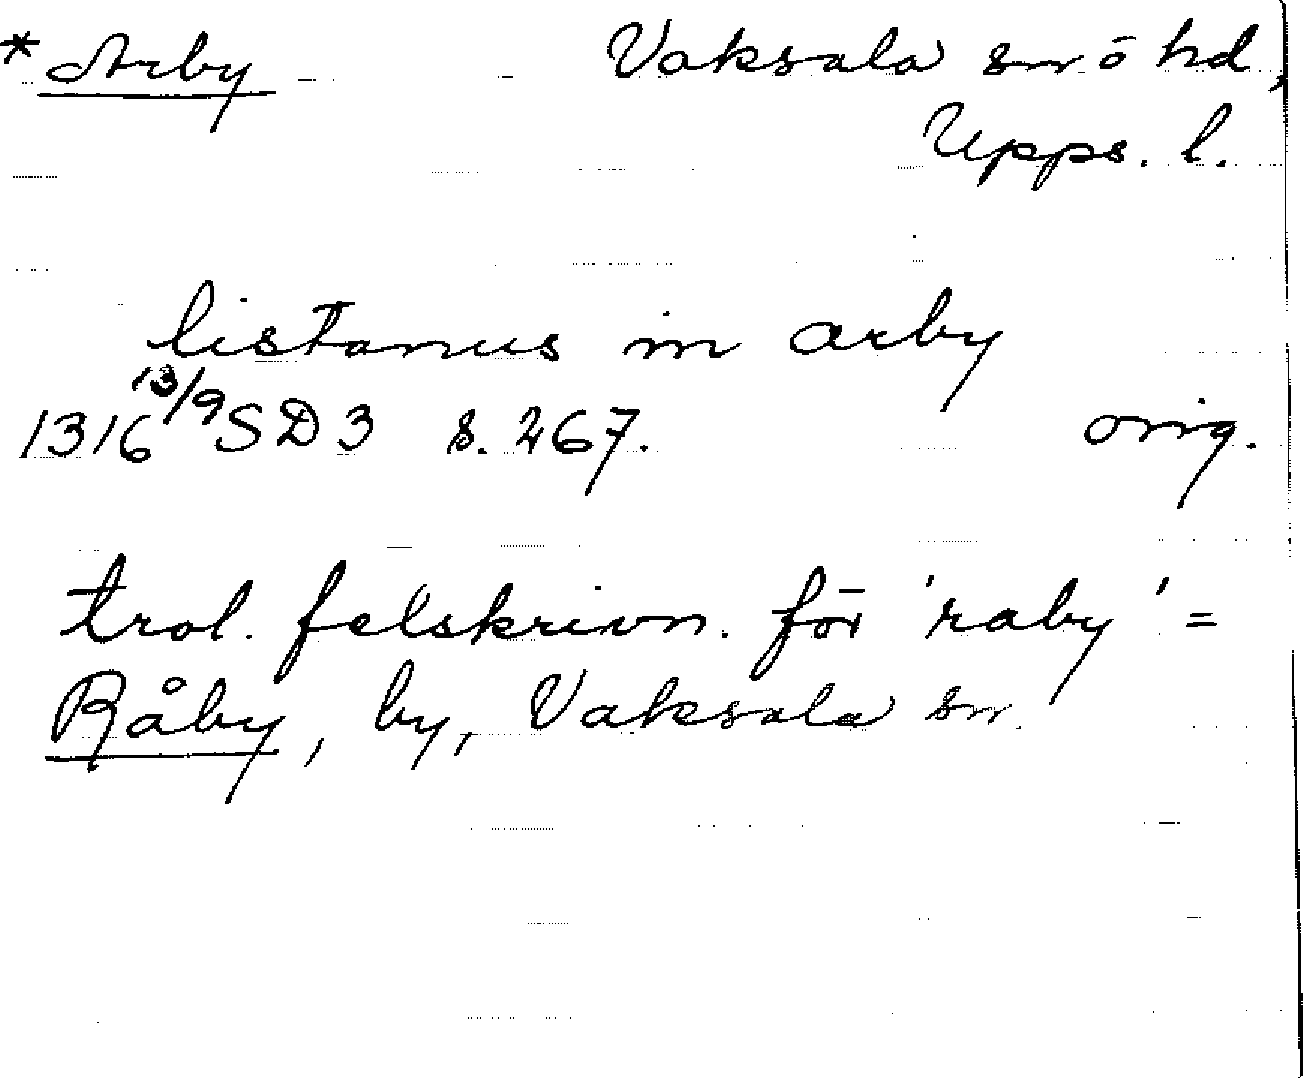 *Arby Vaksala sn ō hd,
Upps. l.
listanus in arby
1316 13/9 SD 3 s. 267. orig.
trol. felskrivn. för 'raby' =
Råby, by, Vaksala sn.